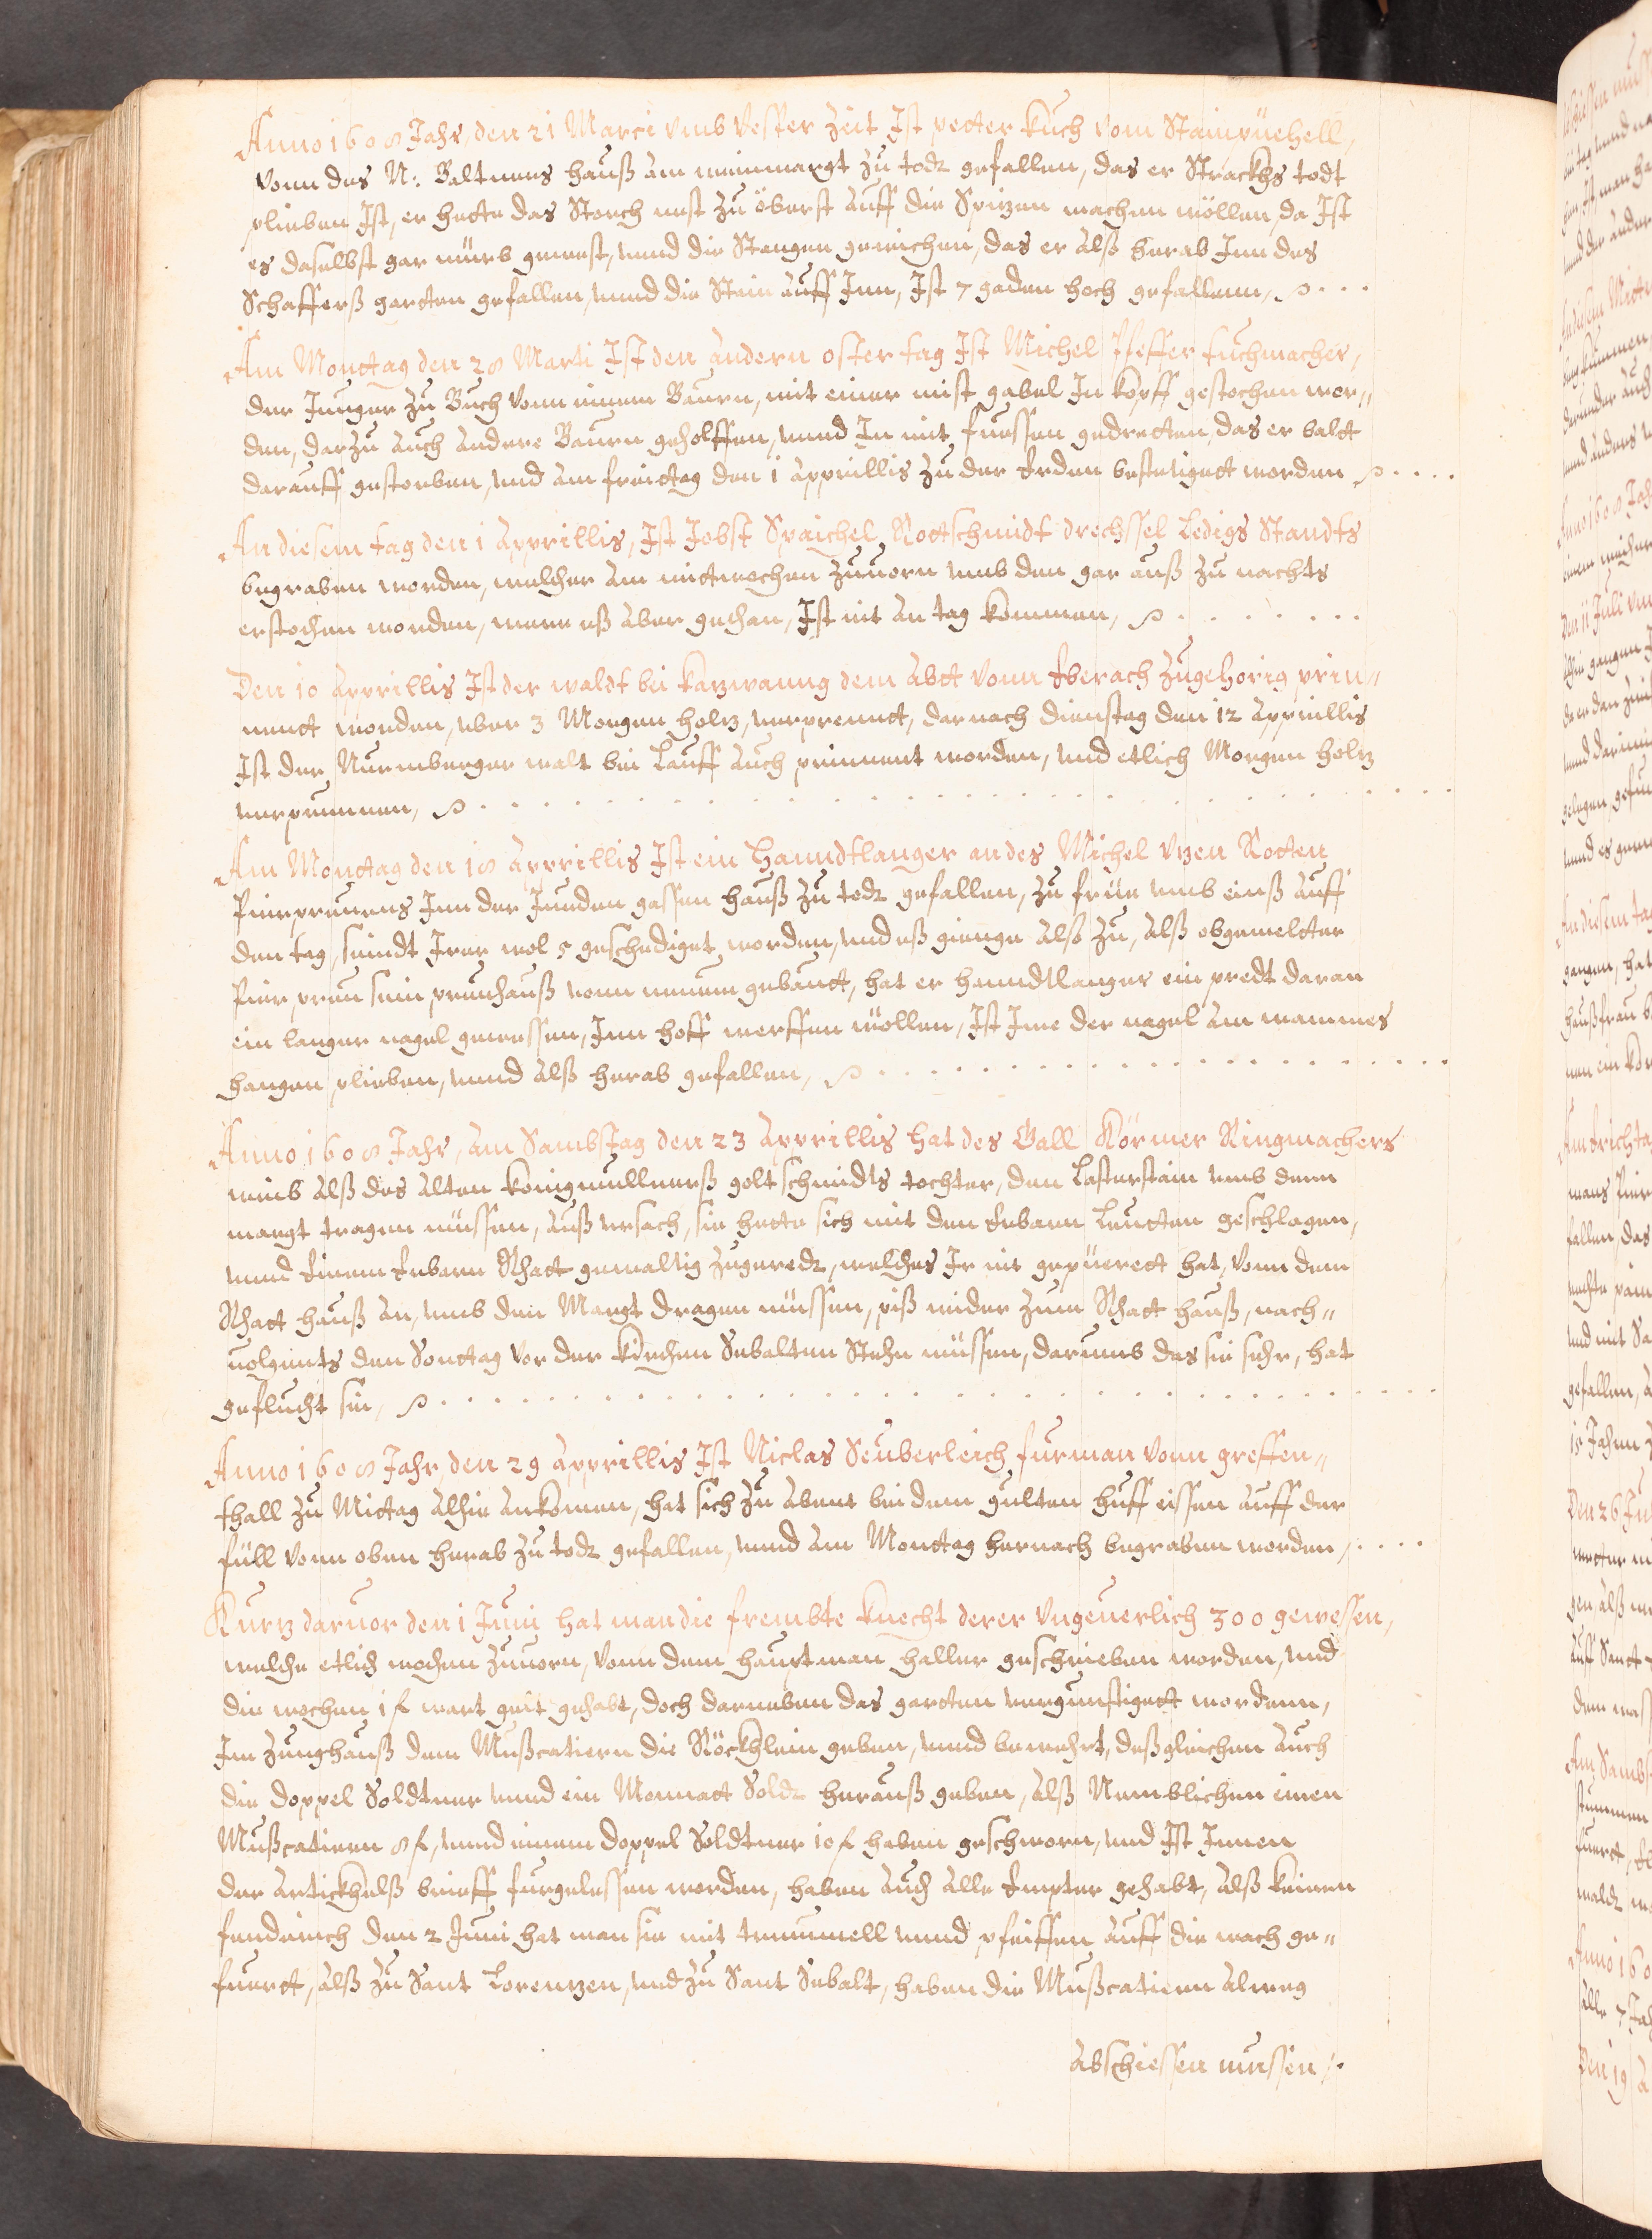 Anno 1608 Jahr, den 21 Marci vmb Vesper Zeit Ist petter Kuch vom Stainpüehell,
vonn des N: Baltners hauß am weinmargt zu todt gefallen, das er Strackhs todt
plieben Ist, er hette das Storch nest zu öberst auff die Spizen machen wöllen, da Ist
es daselbst gar mürb gewest, vnnd die Stangen gewichen, das er also herab Inn des
Schafferß gartten gefallen, vnnd die Stein auff Inn, Ist 7 gaden hoch gefallenn,
Am Monttag den 28 Marti Ist den andern oster tag Ist Michel Pfeffer tuchmacher,
der Junger zu Buch vonn einem Baurn, mit einer mist gabel In kopff gestochen wor„
den, darzu auch andere Baurn geholffen, vnnd In mit fuessen gedretten, das er baltt
darauff gestorben, vnd am freittag den 1 apprillis zu der Erden bestetigett worden
An diesem tag den 1 Apprillis, Ist Jobst Spaichel Rottschmidt drechssel Ledigs Standts
begraben worden, welcher am mittwochen zuuorn vmb den gar auß zu nachts
erstochen worden, wers eß aber gethan, Ist nit an tag kommen,
Den 10 Apprillis Ist der waldt bei kazwanng dem abtt vonn Eberach zugehorig prin„
nentt worden, vber 3 Morgen holz, verprennt, dernach dienstag den 12 Apprillis
Ist der Nurmberger walt bei Lauff auch prinnent worden, vnd etlich Morgen holz
verprunnen,
Am Monttag den 18 Apprillis Ist ein Hanndtlanger an des Michel Vzen Rotten
Pierpreuens Inn der Jueden gassen hauß zu todt gefallen, zu früe vmb einß auff
den tag, seindt Irer wol 5 geschediget worden, vnd eß gienge also zu, alß obgemeltter
Pier preu sein preuhauß vonn neuem gebautt, hat er hanndtlanger ein predt daran
ein langer nagel gewessen, Inn hoff werffen wöllen, Ist Ime der nagel am wammes
hangen plieben, vnnd alß herab gefallen,
Anno 1608 Jahr, am Sambstag den 23 Apprillis hat des Gall Körmer Ringmachers
weib alß des alten Konigmullnerß golt schmidts tochter, den Lasterstain vmb denn
margt tragen müssen, auß vrsach, sie hette sich mit den Erbarn Leutten geschlagen,
vnnd Einem Erbarn Rhatt gewaltig zugeredt, welches Ir nit gepüerett hat, vonn dem
Rhatt hauß an, vmb den Margt dragen müssen, piß wider zum Rhatt hauß, nach„
uolgents den Sonttag vor der Kirchen Sebalten Stehn müssen, darumb das sie sehr, hat
geflucht sie,
Anno 1608 Jahr, den 29 Apprillis Ist Niclas Seuberleich furman vonn greffen„
thall zu Mittag alhie ankomen, hat sich zu abent bei dem gulten huff eissen auff der
füll vonn oben herab zu todt gefallen, vnnd am Monttag hernach begraben worden,
Kurz daruor den 1 Juni hat man die frembte Knecht derer vngeuerlich 300 gewessen,
welche etlich wochen zuuorn, vonn dem haubtman haller geschrieben worden, vnd
die wochen 1 f wart gelt gehabt, doch darneben das gartten vergunstigett wordenn,
Im Zeughauß dem Mußcatiern die Röckhlein geben, vnnd bewehrt, deßgleichen auch
die doppel Soldtner vnnd ein Monnatt Soldt herauß geben, alß Nemblichen einen
Mußcatiern 8 f, vnnd einem doppel Soldtner 10 f haben geschworn, vnd Ist Innen
der Artickhelß brieff furgelessen worden, haben auch alle Empter gehabt, alß keinen
fendrich den 2 Juni hat man sie mit trummell vnnd pfeiffen auff die wach ge„
fuertt, alß zu Sant Lorenzen, vnd zu Sant Sebalt, haben die Mußcatiern alweg
abschiessen mussen,